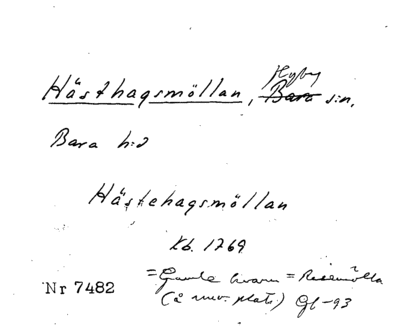 Hästhagsmöllan, Hyby Bara s:n,
Bara h:d
Hästehagsmöllan
Kb. 1769
= Gamla kvarn = Rosemölla
Nr 7482 (å nuv. plats.) Gl-93